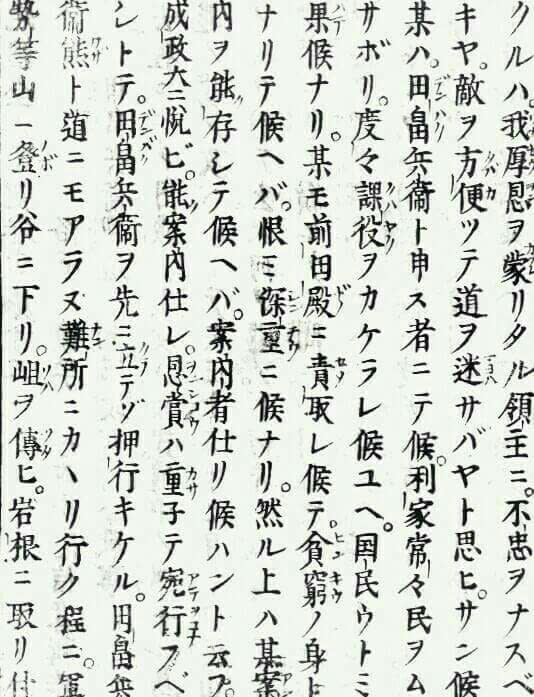 クルハ。我厚恩ヲ蒙リタル領主ニ。不忠ヲナスベ
キヤ。敵ヲ方便ツテ道ヲ迷サバヤト思ヒ。サン候
某ハ。田畠兵衞ト申ス者ニテ候。利家常々民ヲム
サボリ。度々課役ヲカケラレ候ユヘ。国民ウトミ
果候ナリ。某モ前田殿ニ責取レ候テ。貧窮ノ身ト
ナリテ候ヘバ。恨ミ深重ニ候ナリ。然ル上ハ某案
内ヲ能存シテ候ヘバ。案内者仕リ候ハント云フ。
成政大ニ悦ビ。能案内仕レ。恩賞ハ重子テ宛行フベ
シトテ。田畠兵衞ヲ先ニ立テゾ押行キケル。田畠兵
衞熊ト道ニモアラヌ難所ニカヽリ行ク程ニ。軍
勢等山ニ登リ谷ニ下リ。岨ヲ傳ヒ。岩根ニ取リ付